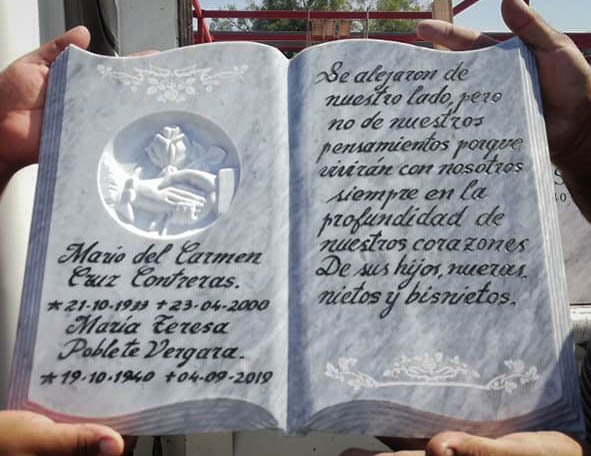 Mario del Carmen
Cruz Contreras.
★21-10-1933 ✝23-04-2000
María Teresa
Poblete Vergara.
★19-10-1940 ✝04-09-2019
Se alejaron de
nuestro lado, pero
no de nuestros
pensamientos porque
vivirán con nosotros
siempre en la
profundidad de
nuestros corazones
De sus hijos, nueras,
nietos y bisnietos.